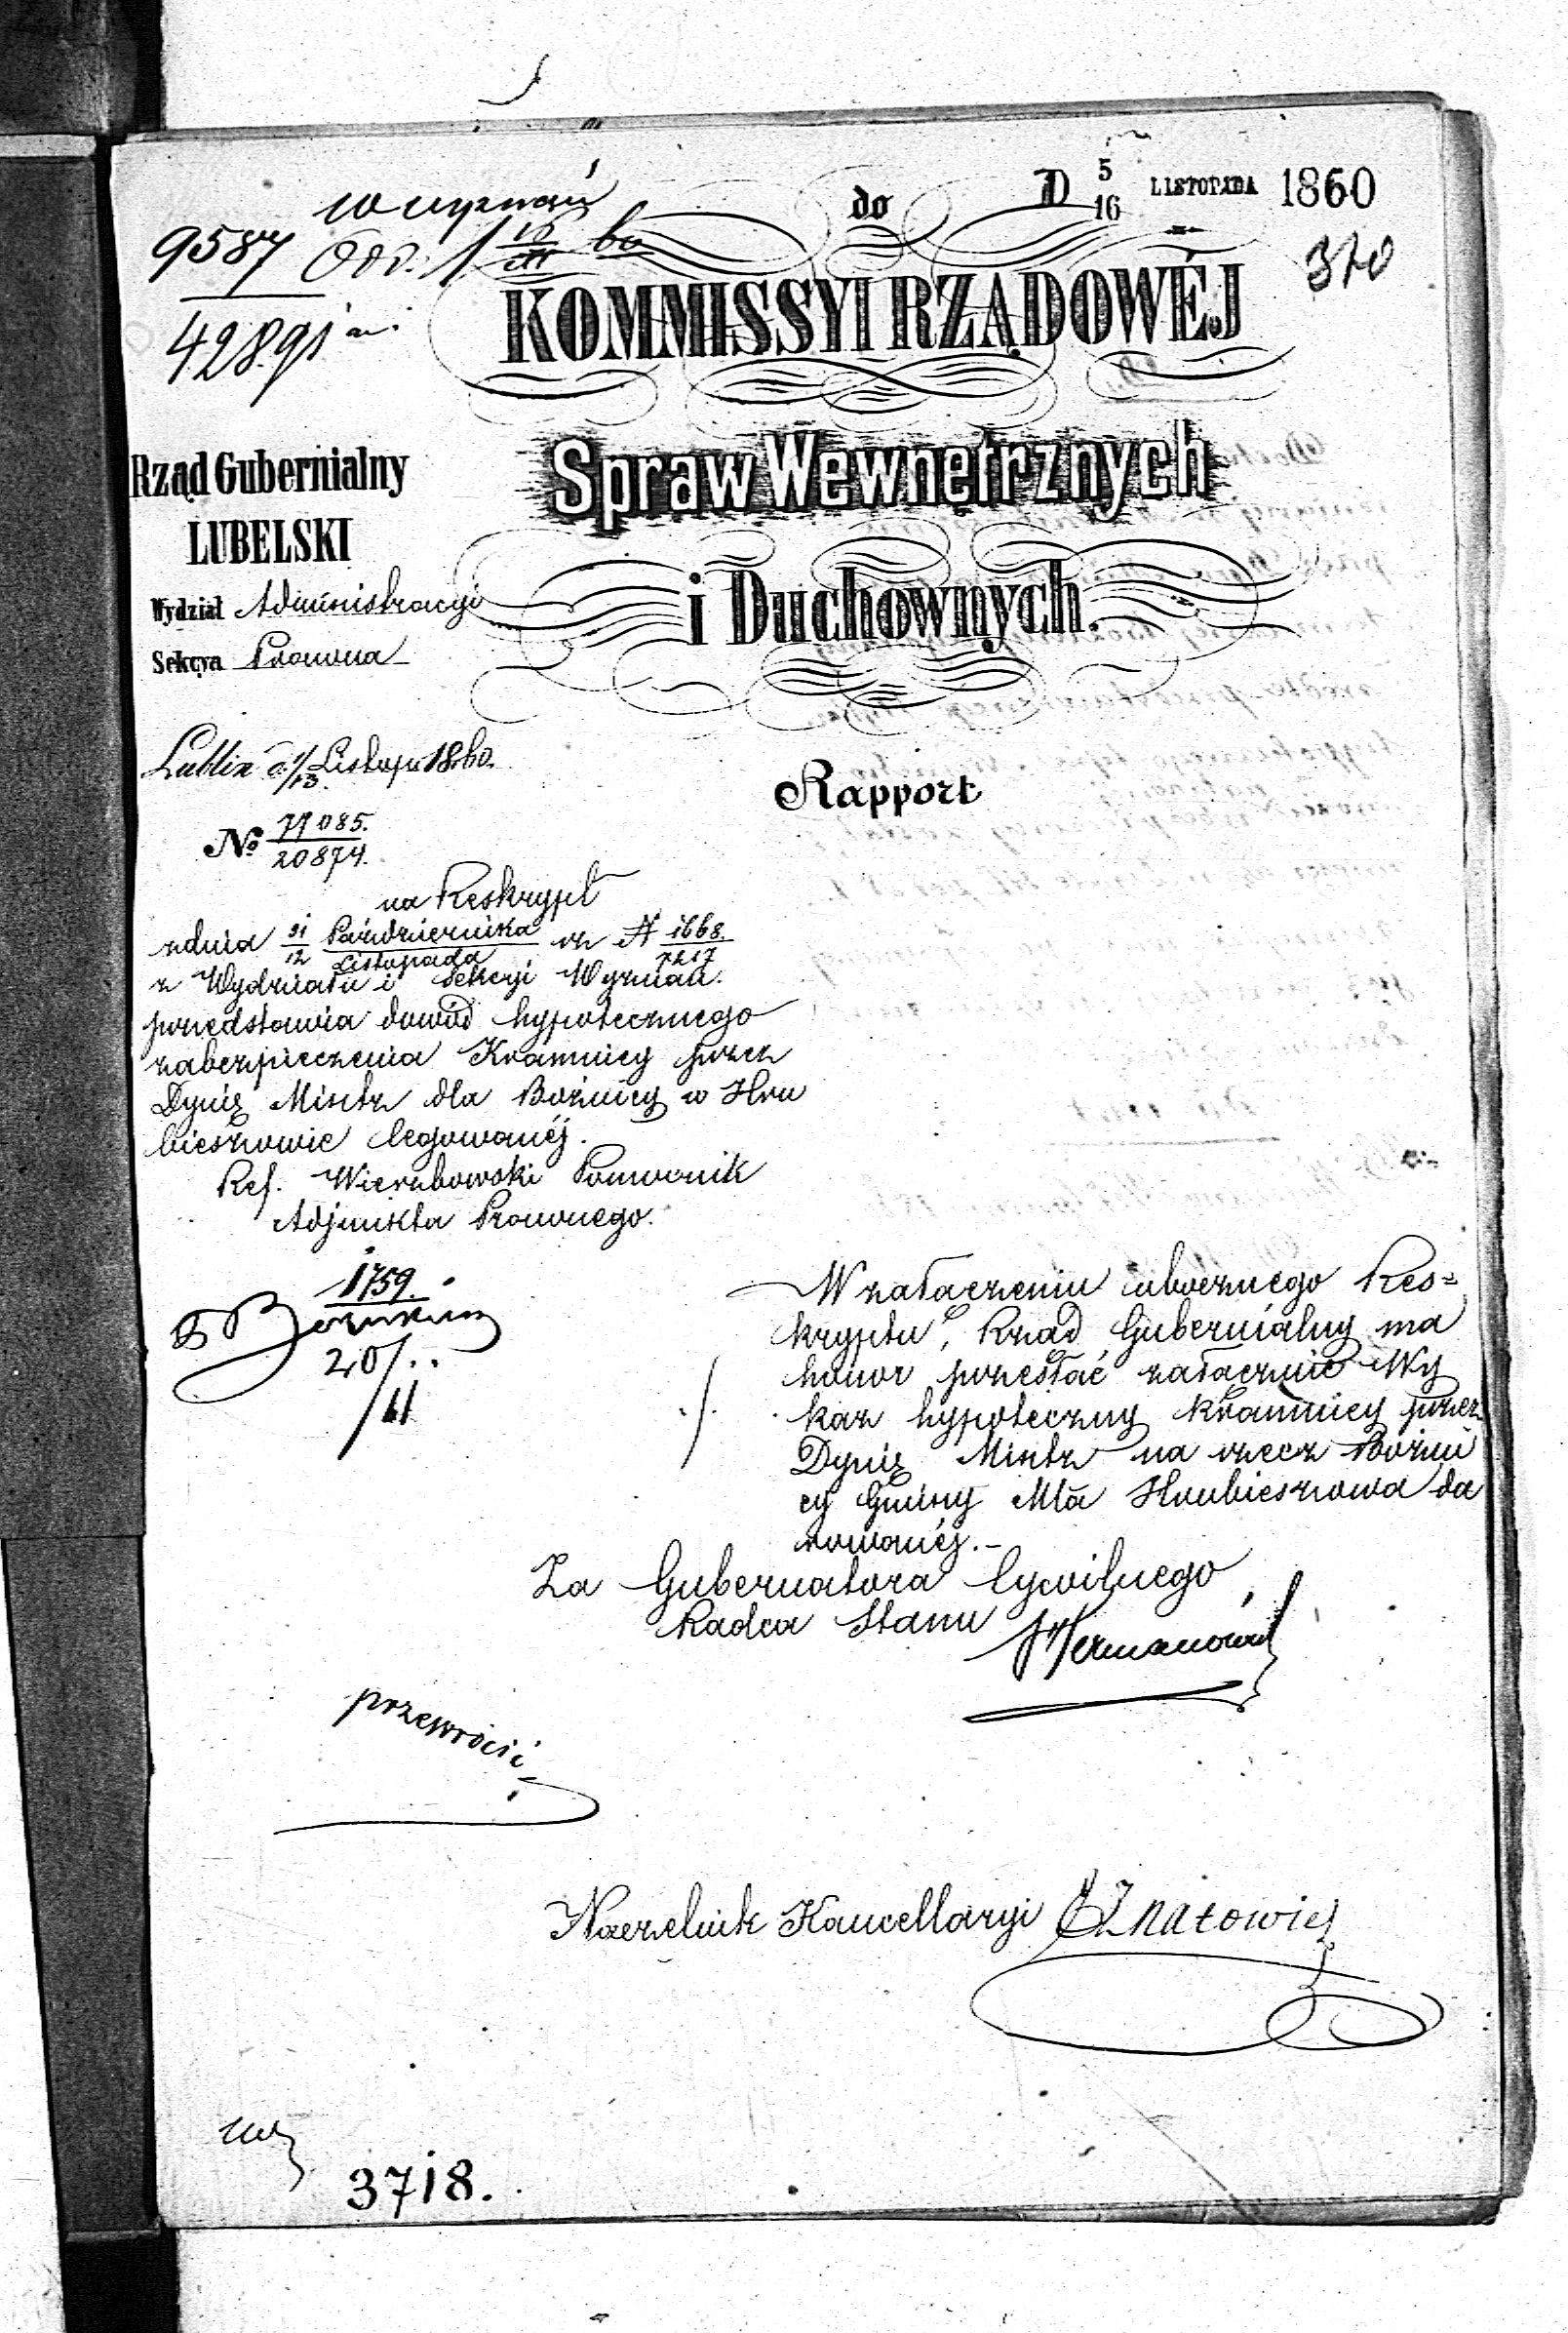 do
D 5/16 LISTOPADA 1860
w wyznań
9587
42891
370
KOMMISSYI RZĄDOWÉJ
Spraw Wewnętrznych
i Duchownych.
Rząd Gubernialny
LUBELSKI
Wydział Administracyi
Sekcya Prawna
Lublin d. 1/13 Listopa 1860.
Rapport
No 77085./20874.
na Reskrypt
z dnia 31/12 Października/Listopada z N 1668./7217
z Wydziału i Sekcyi Wyznań.
przedstawia dowód hypotecznego
zabezpieczenia Kramnicy przez
Dynię Mintz dla Bożnicy w Hru
bieszowie legowanéj.
Ref. Wierzbowski Pomocnik
Adjunkta Prawnego.
1759.
20/11
W załączeniu ubocznego Res=
kryptu, Rząd Gubernialny ma
honor przesłać załącznie Wy
kaz hypoteczny Kramnicy przez
Dynię Mintz na rzecz Bożni
cy Gminy Mta Hrubieszowa da
rowanéj.-
Za Gubernatora Cywilnego
Radca Stanu
przewrócić
Naczelnik Kancellaryi Ignatowicz
3718.